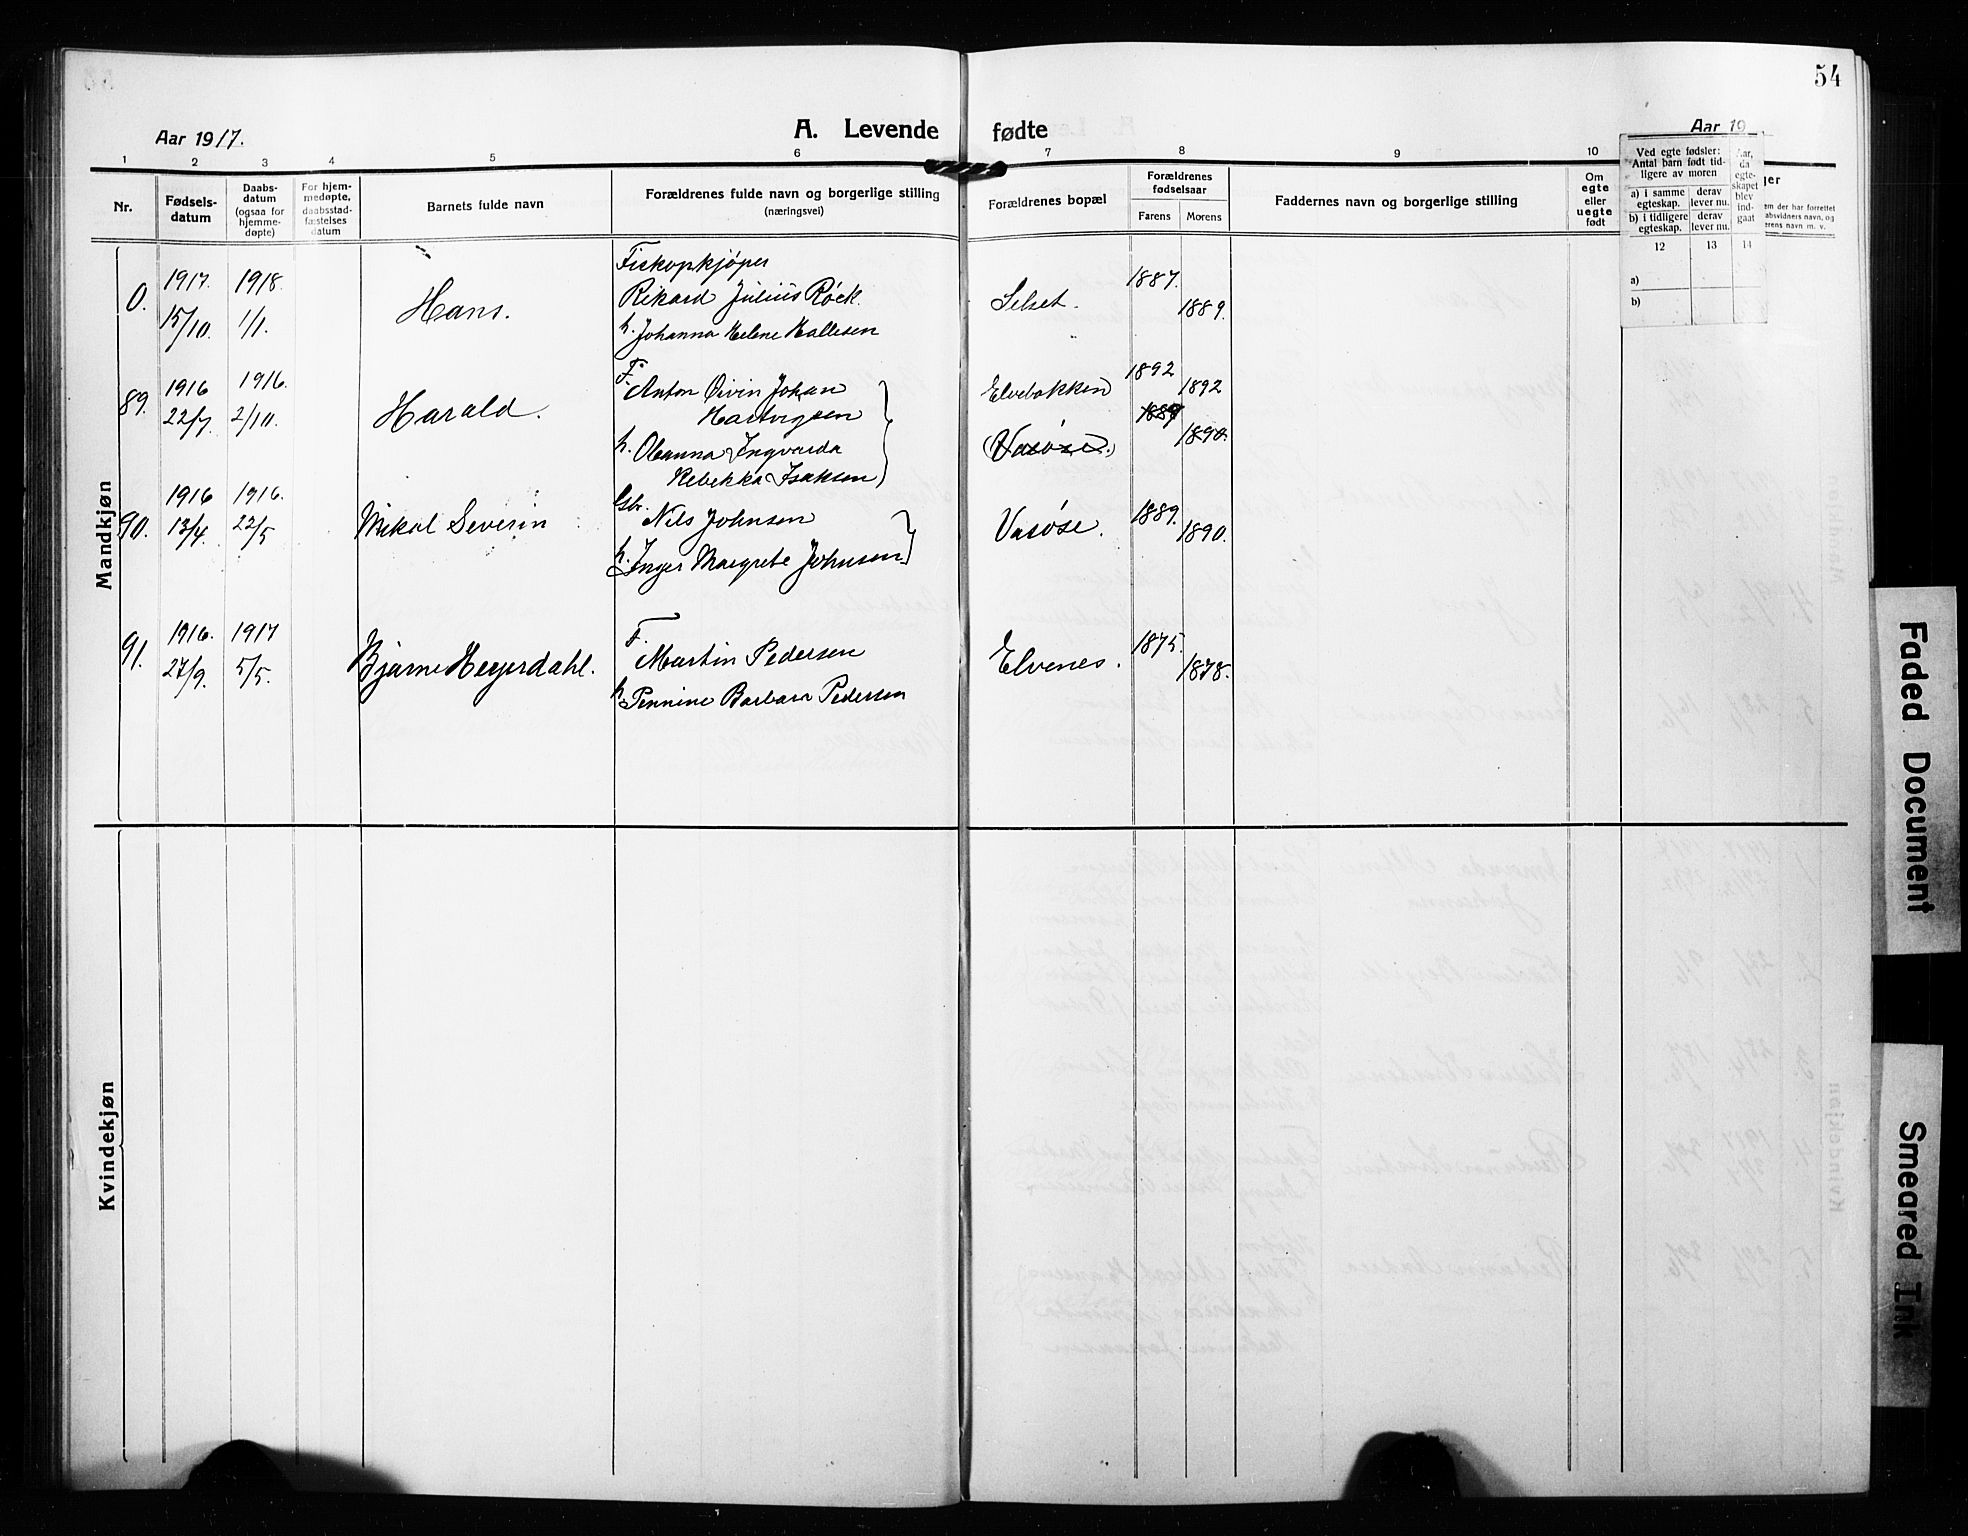 54
Aar 1917.
A. Levende fødte
Aar 19
1 2 3 4 5 6 7 8 9 10
Nr.
Fødsels-
datum
Daabs-
datum
(ogsaa for
hjemme-
døpte)
For hjem-
medøpte,
daabsstad-
fæstelses
datum
Barnets fulde navn
Forældrenes fulde navn og borgerlige stilling
(næringsvei)
Forældrenes bopæl
Forældrenes
fødselsaar
Farens Morens
Faddernes navn og borgerlige stilling
Om
egte
eller
uegte
født
Ved egte fødsler:
Antal barn født tid-
ligere av moren
a) i samme
egteskap.
derav
lever nu.
b) i tidligere
egteskap.
derav
lever nu.
Aar,
da
egte-
skapet
blev
ind-
gaat
12 13 14
a)
b)
ger
em der har forrettet
absvidners navn, og
erens navn m. v.
Mandkjøn
0.
1917.
15/10.
1918.
1/1.
Hans.
Fiskopkjøper
Rikard Julius Röck.
h. Johanna Helene Hallesen
Selset.
1887.
1889.
89.
1916
22/7
1916.
2/10.
Harald.
F.
Anton Eivin Johan
Hartvigsen
h. Oleanna Ingvarda
Rebekka Isaksen
Elvebakken
(Vasøse.)
1892
1892
1889
1890.
90.
1916
13/4.
1916.
22/5
Mikal Severin
Gbr.
Nils Johnsen
h. Inger Margrete Johnsen
Vasøse.
1889.
1890.
91.
1916.
27/9.
1917
5/5.
Bjarne Heyerdahl.
F.
Martin Pedersen
h. Pennine Barbara Pedersen
Elvenes.
1875.
1878.
Kvindekjøn
Faded Document
Smeared Ink